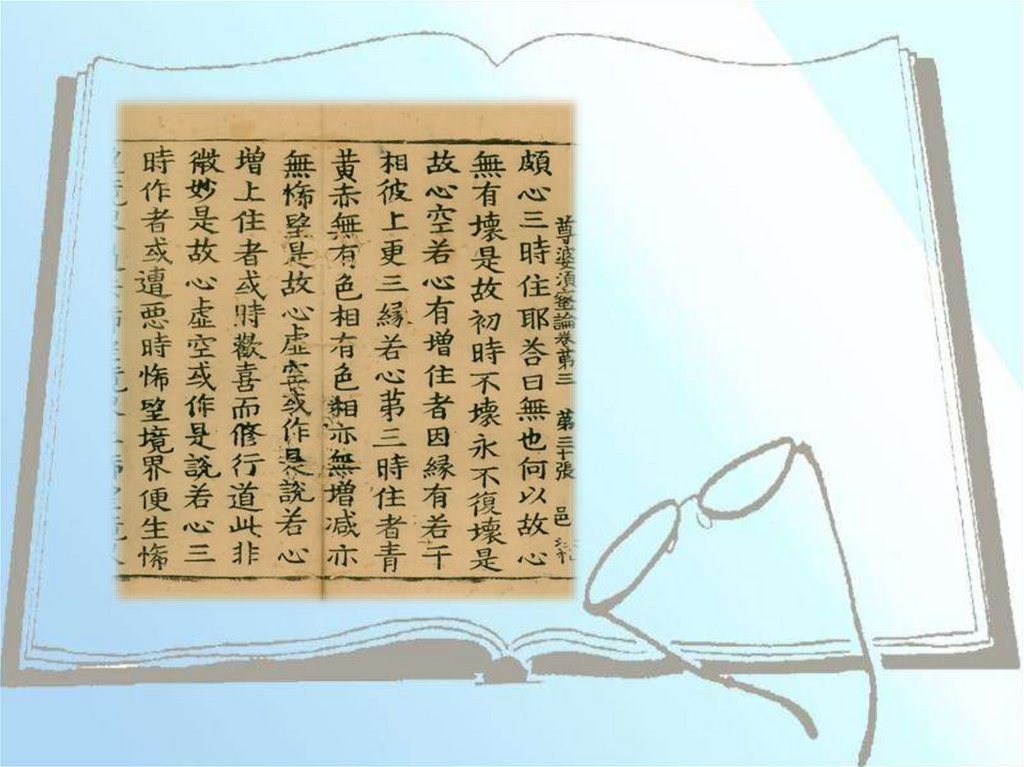 尊婆須蜜論卷苐三 苐三十張 邑
頗心三時住耶荅曰無也何以故心
無有壞是故初時不壞永不復壞是
故心空若心有增住者因緣有若干
相彼上更三緣若心苐三時住者青
黃赤無有色相有色相亦無增減亦
無悕望是故心虛空或作是說若心
增上住者或時歡喜而修行道此非
微妙是故心虛空或作是說若心三
時作者或遭惡時悕望境界便生悕